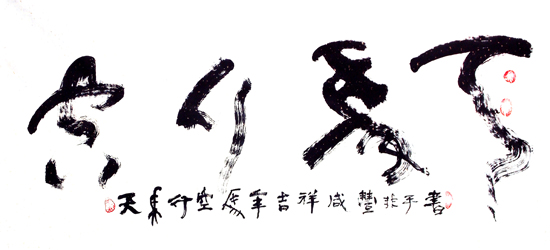 天馬行空
天馬行空馬年吉祥咸豐手書